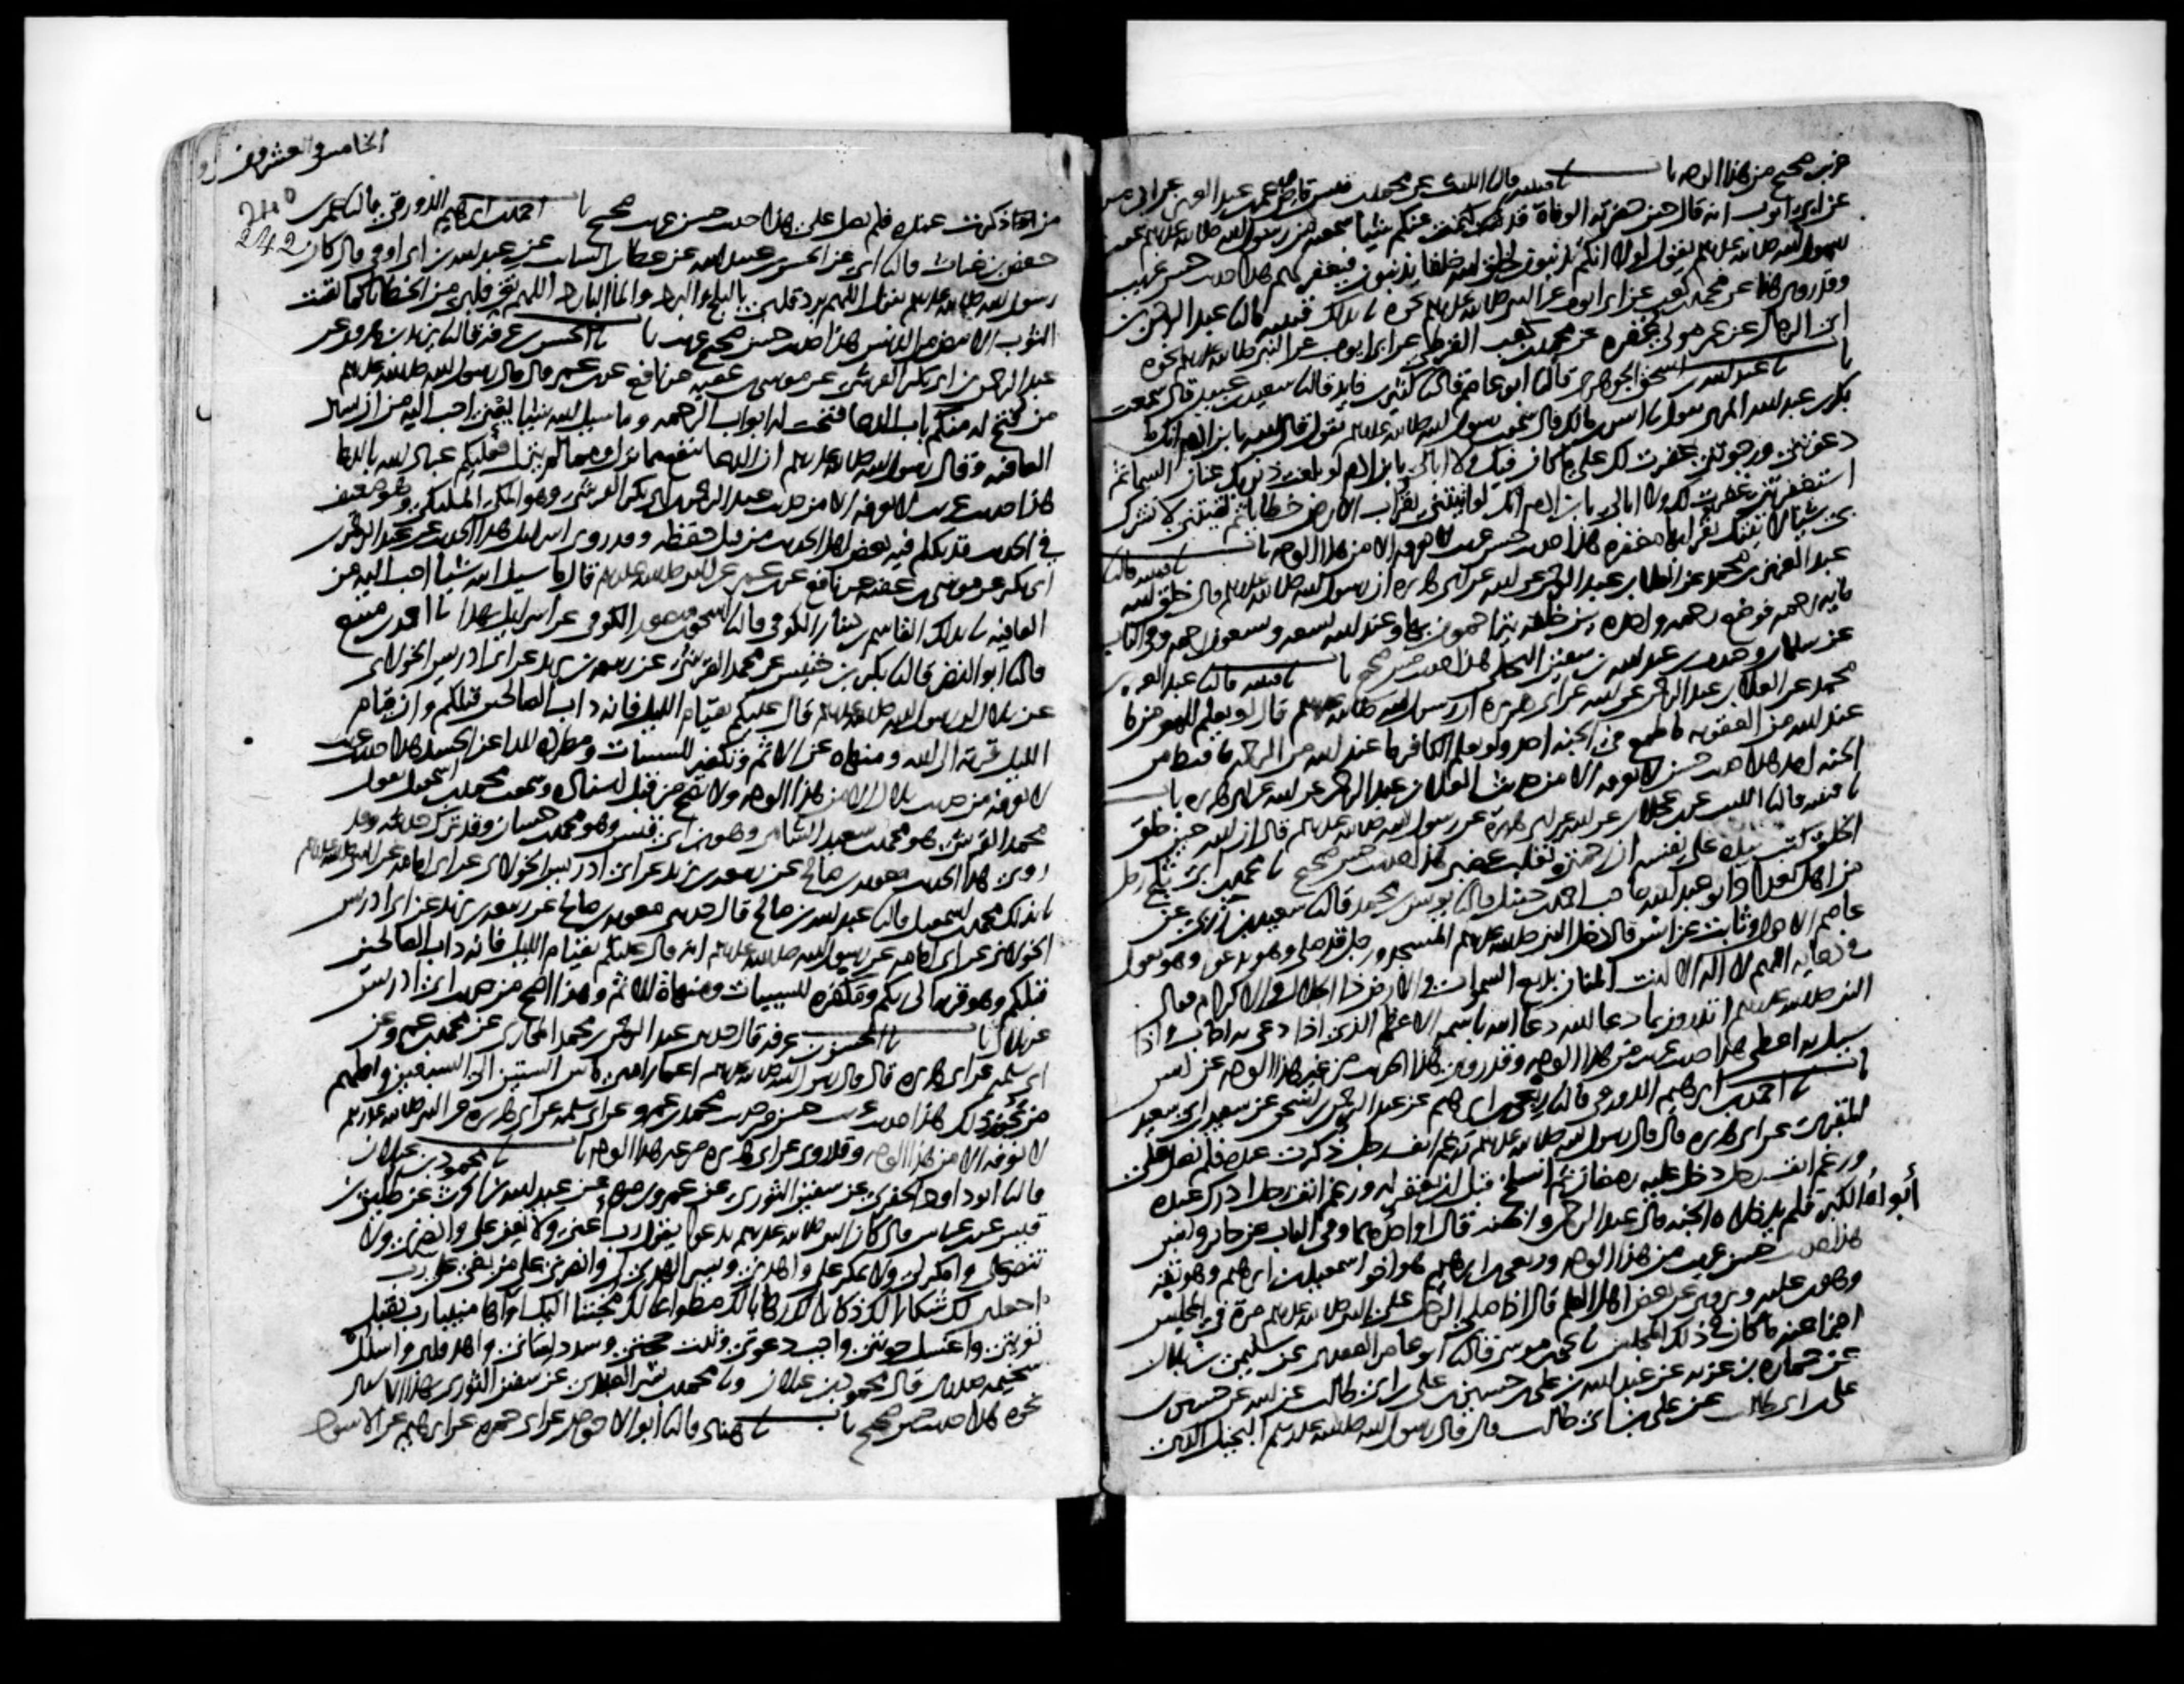 حسن صحيح من هذا الوجه باب نا قتيبه قال نا الليث عن محمد بن قيس قاص عمر بن عبد العزيز عن ابي صرمه
عن ابي ايوب انه قال حين حضرته الوفاة قد كتمت عنكم شيئا سمعته من رسول الله صلى الله عليه وسلم سمعت
رسول الله صلى الله عليه وسلم يقول لولا انكم تذنبون لخلق الله خلقا يذنبون فيغفر لهم هذا حديث حسن غريب
وقد روي هذا عن محمد بن كعب عن ابي ايوب عن النبي صلى الله عليه وسلم نحوه نا بذلك قتيبه قال نا عبد الرحمن بن
ابي الرجال عن عمر مولى غفره عن محمد بن كعب القرظي عن ابي ايوب عن النبي صلى الله عليه وسلم نحوه
باب نا عبد الله بن اسحق الجوهري قال نا ابو عاصم قال نا كثير بن فايد قال نا سعيد بن عبيد قال سمعت
بكر بن عبد الله المزني يقول نا انس بن مالك قال سمعت رسول الله صلى الله عليه وسلم يقول قال الله يا بن ادم انك ما
دعوتني ورجوتني غفرت لك على ما كان فيك ولا ابالي يا بن ادم لو بلغت ذنوبك عنان السما ثم
استغفرتني غفرت لك ولا ابالي يا بن ادم انك لو اتيتني بقراب الارض خطايا ثم لقيتني لا تشرك
بي شيئا لاتيتك بقرابها مغفره هذا حديث حسن غريب لا نعرفه الا من هذا الوجه باب نا قتيبه قال نا
عبد العزيز بن محمد عن العلا بن عبد الرحمن عن ابيه عن ابي هريره ان رسول الله صلى الله عليه وسلم قال خلق الله
مايه رحمه فوضع رحمه واحده بين خلقه يتراحمون بها وعند الله تسعه وتسعون رحمه وفي الباب
عن سلمان وجندب بن عبد الله بن سفين البجلي هذا حديث حسن صحيح باب نا قتيبه قال نا عبد العزيز بن
محمد عن العلا بن عبد الرحمن عن ابيه عن ابي هريره ان رسول الله صلى الله عليه وسلم قال لو يعلم المومن ما
عند الله من العقوبه ما طمع في الجنه احد ولو يعلم الكافر ما عند الله من الرحمه ما قنط من
الجنه احد هذا حديث حسن لا نعرفه الا من حديث العلا بن عبد الرحمن عن ابيه عن ابي هريره باب
نا قتيبه قال نا الليث عن ابن عجلان عن ابيه عن ابي هريرة عن رسول الله صلى الله عليه وسلم قال ان الله حين خلق
الخلق كتب بيده على نفسه ان رحمتي تغلب غضبي هذا حديث حسن صحيح نا محمد بن ابي ثلج رجل
من اهل بغداد ابو عبد الله صاحب احمد بن حنبل قال نا يونس بن محمد قال نا سعيد بن زربي عن
عاصم الاحول وثابت عن انس قال دخل النبي صلى الله عليه وسلم المسجد ورجل قد صلى وهو يدعو وهو يقول
في دعايه اللهم لا اله الا انت المنان بديع السموات والارض ذا الجلال والاكرام فقال
النبي صلى الله عليه وسلم اتدرون بما دعا الله دعا الله باسمه الاعظم الذي اذا دعي به اجاب واذا
سيل به اعطى هذا حديث غريب من هذا الوجه وقد روي هذا الحديث من غير هذا الوجه عن انس
باب نا احمد بن ابرهيم الدورقي قال نا ربعي بن ابرهيم عن عبد الرحمن بن اسحق عن سعيد بن ابي سعيد
المقبري عن ابي هريره قال قال رسول الله صلى الله عليه وسلم رغم انف رجل ذكرت عنده فلم يصل علي
ورغم انف رجل دخل عليه رمضان ثم انسلخ قبل ان يغفر له ورغم انف رجل ادرك عنده
أبواه الكبر فلم يدخلاه الجنه قال عبد الرحمن واظنه قال او احدهما وفي الباب عن جابر وانس
هذا حديث حسن غريب من هذا الوجه وربعي بن ابرهيم هو اخو اسمعيل بن ابرهيم وهو ثقه
وهو ابن عليه ويروى عن بعض اهل العلم قال اذا صلى الرجل على النبي صلى الله عليه وسلم مرة في المجلس
اجزا عنه ما كان في ذلك المجلس نا يحيى بن موسى قال نا ابو عامر العقدي عن سليمن بن بلال
عن عماره بن غزيه عن عبد الله بن علي بن حسين بن علي بن ابي طالب عن ابيه عن حسين بن
علي بن ابي طالب عن علي بن ابي طالب قال قال رسول الله صلى الله عليه وسلم البخيل الذي
الخامس والعشرون
240
242
من اذا ذكرت عنده فلم يصل علي هذا حديث حسن غريب صحيح باب نا احمد بن ابرهيم الدورقي قال نا عمر بن
حفص بن غياث قال نا ابي عن الحسن بن عبيد الله عن عطا بن السايب عن عبد الله بن ابي اوفى قال كان
رسول الله صلى الله عليه وسلم يقول اللهم برد قلبي بالثلج والبرد والما البارد اللهم نق قلبي من الخطايا كما نقيت
الثوب الابيض من الدنس هذا حديث حسن صحيح غريب باب نا الحسن بن عرفه قال نا يزيد بن هرون عن
عبد الرحمن بن ابي بكر القرشي عن موسى بن عقبه عن نافع عن ابن عمر قال قال رسول الله صلى الله عليه وسلم
من فتح له منكم باب الدعا فتحت له ابواب الرحمه وما سيل الله شيئا يعني احب اليه من ان يسال
العافيه وقال رسول الله صلى الله عليه وسلم ان الدعا ينفع مما نزل ومما لم ينزل فعليكم عباد الله بالدعا
هذا حديث غريب لا نعرفه الا من حديث عبد الرحمن بن ابي بكر القرشي وهو المكي المليكي وهو ضعيف
في الحديث قد تكلم فيه بعض اهل الحديث من قبل حفظه وقد روى اسرائيل هذا الحديث عن عبد الرحمن بن
ابي بكر عن موسى بن عقبه عن نافع عن ابن عمر عن النبي صلى الله عليه وسلم قال ما سيل الله شيئا احب اليه من
العافيه نا بذلك القاسم بن دينار الكوفي قال نا اسحق بن منصور الكوفي عن اسرائيل بهذا نا احمد بن منيع
قال نا ابو النضر قال نا بكر بن خنيس عن محمد القرشي عن ربيعه بن يزيد عن ابي ادريس الخولاني
عن بلال ان رسول الله صلى الله عليه وسلم قال عليكم بقيام الليل فانه داب الصالحين قبلكم وان قيام
الليل قربة الى الله ومنهاه عن الاثم وتكفير للسييات ومطرده للدا عن الجسد هذا حديث غريب
لا نعرفه من حديث بلال الا من هذا الوجه ولا يصح من قبل اسناده وسمعت محمد بن اسمعيل يقول
محمد القرشي هو محمد بن سعيد الشامي وهو ابن ابي قيس وهو محمد بن حسان وقد ترك حديثه وقد
روى هذا الحديث معويه بن صالح عن ربيعه بن يزيد عن ابي ادريس الخولاني عن ابي امامه عن النبي صلى الله عليه وسلم
نا بذلك محمد بن اسمعيل قال نا عبد الله بن صالح قال حدثني معويه بن صالح عن ربيعه بن يزيد عن ابي ادريس
الخولاني عن ابي امامه عن رسول الله صلى الله عليه وسلم انه قال عليكم بقيام الليل فانه داب الصالحين
قبلكم وهو قربه الى ربكم ومكفره للسييات ومنهاة للاثم وهذا اصح من حديث ابي ادريس
عن بلال باب نا الحسن بن عرفه قال حدثني عبد الرحمن بن محمد المحاربي عن محمد بن عمرو عن
ابي سلمه عن ابي هريره قال قال رسول الله صلى الله عليه وسلم اعمار امتي ما بين الستين الى السبعين واقلهم
من يجوز ذلك هذا حديث غريب حسن من حديث محمد بن عمرو عن ابي سلمه عن ابي هريره عن النبي صلى الله عليه وسلم
لا نعرفه الا من هذا الوجه وقد روي عن ابي هريره من غير هذا الوجه باب نا محمود بن غيلان
قال نا ابو داود الحفري عن سفين الثوري عن عمرو بن مره عن عبد الله بن الحرث عن طليق بن
قيس عن ابن عباس قال كان النبي صلى الله عليه وسلم يدعو يقول رب أعني ولا تعن علي وانصرني ولا
تنصر علي وامكر لي ولا تمكر علي واهدني ويسر الهدى لي وانصرني على من بغى علي رب
اجعلني لك شكارا لك ذكارا لك رهابا لك مطواعا لك مخبتا اليك اواها منيبا رب تقبل
توبتي واغسل حوبتي واجب دعوتي وثبت حجتي وسدد لساني واهد قلبي واسلل
سخيمه صدري قال محمود بن غيلان ونا محمد بن بشر العبدي عن سفين الثوري بهذا الاسناد
نحوه هذا حديث حسن صحيح باب نا هناد قال نا ابو الاحوص عن ابي حمزه عن ابرهيم عن الاسود